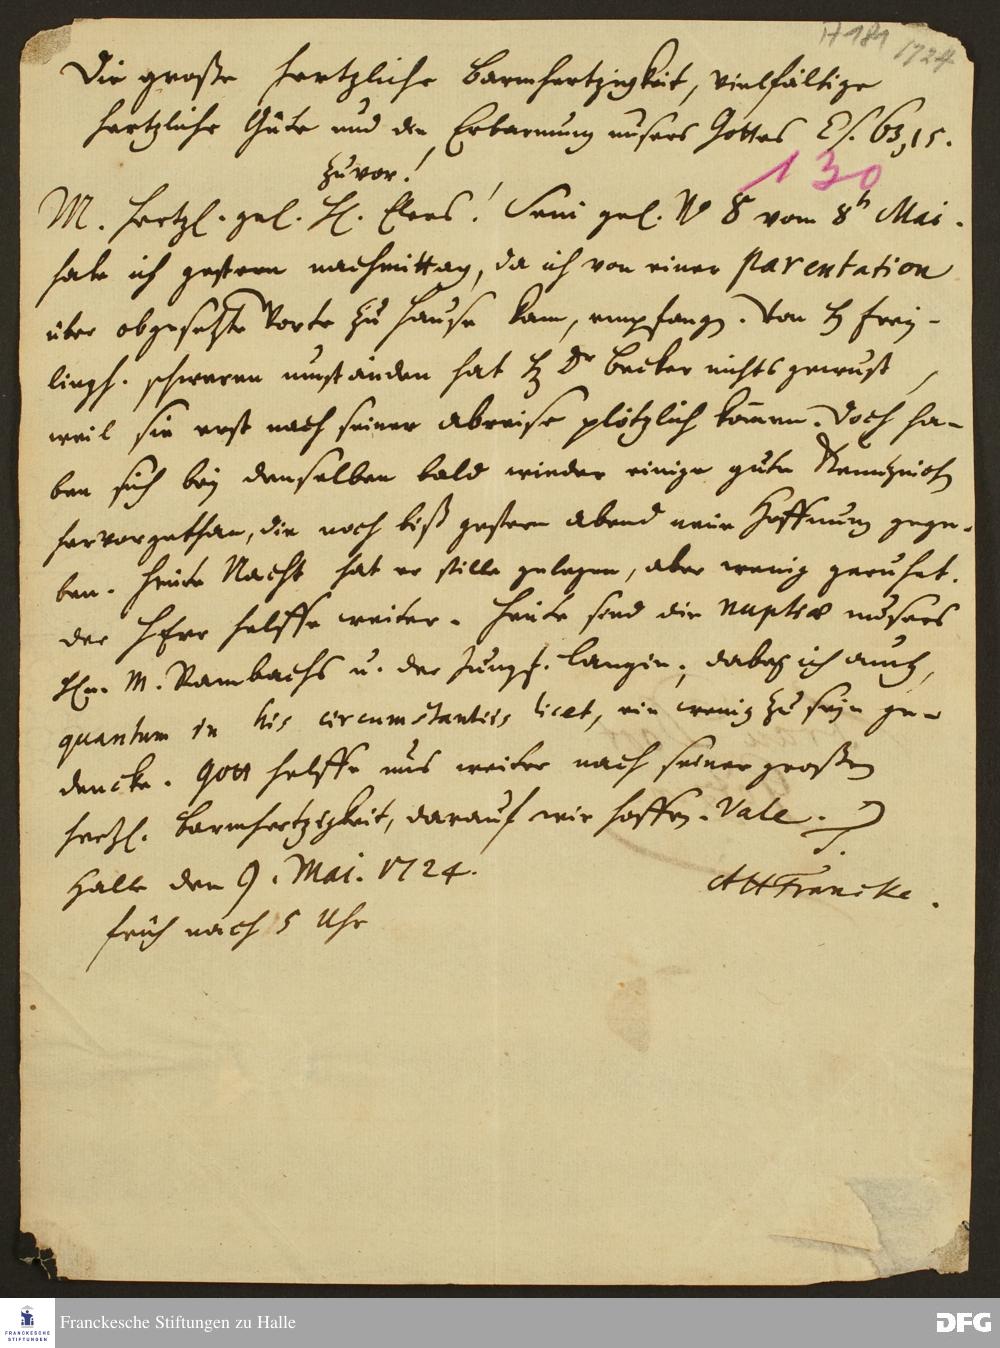 A 181 1724
Die große hertzliche Barmhertzigkeit, vielfältige
hertzliche Güte und die Erbarmung unsers Gottes Es. 63, 15.
zuvor!
130
M. hertzl. gel. H. Elers! Sein gel. No 8 vom 8t Mai.
habe ich gestern nachmittag, da ich von einer parentation
über abgesetzte Worte zu Hause kam, empfangen. Von H Frey-
lingh. schweren umständen hat H Dr Becker nichts gewust,
weil sie erst nach seiner abreise plötzlich kommen. Doch ha-
ben sich bey denselben bald wieder einige gute Kennzeichen
hervorgethan, die noch biß gestern abend neue Hoffnung gege-
ben. Heute Nacht hat er stille gelegen, aber wenig geruhet.
der HErr helffe weiter. Heute sind die nuptiæ unsers
Hn. M. Rambachs u. der Jungf. Langin, dabey ich auch,
quantum in his circumstantiis licet, ein wenig zu seyn ge-
dencke. Gott helffe uns weiter nach seiner großen
hertzl. Barmhertzigkeit, darauf wir hoffen. Vale.
Halle den 9. Mai. 1724.
AHFrancke.
früh nach 5 Uhr
FRANCKESCHE STIFTUNGEN
Franckesche Stiftungen zu Halle
DFG